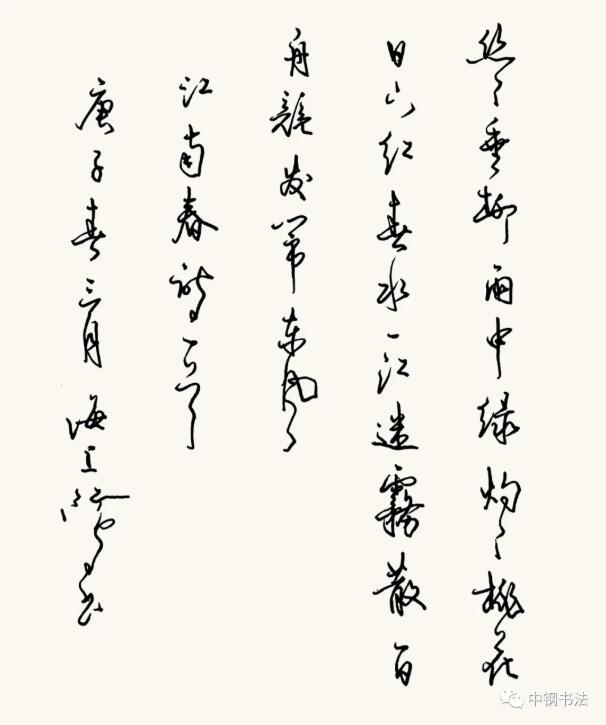 丝丝垂柳雨中绿灼灼桃花
日下红春水一江雾散百
舟竞发东风
江南春诗一首
庚子春三月海上书
中钢书法